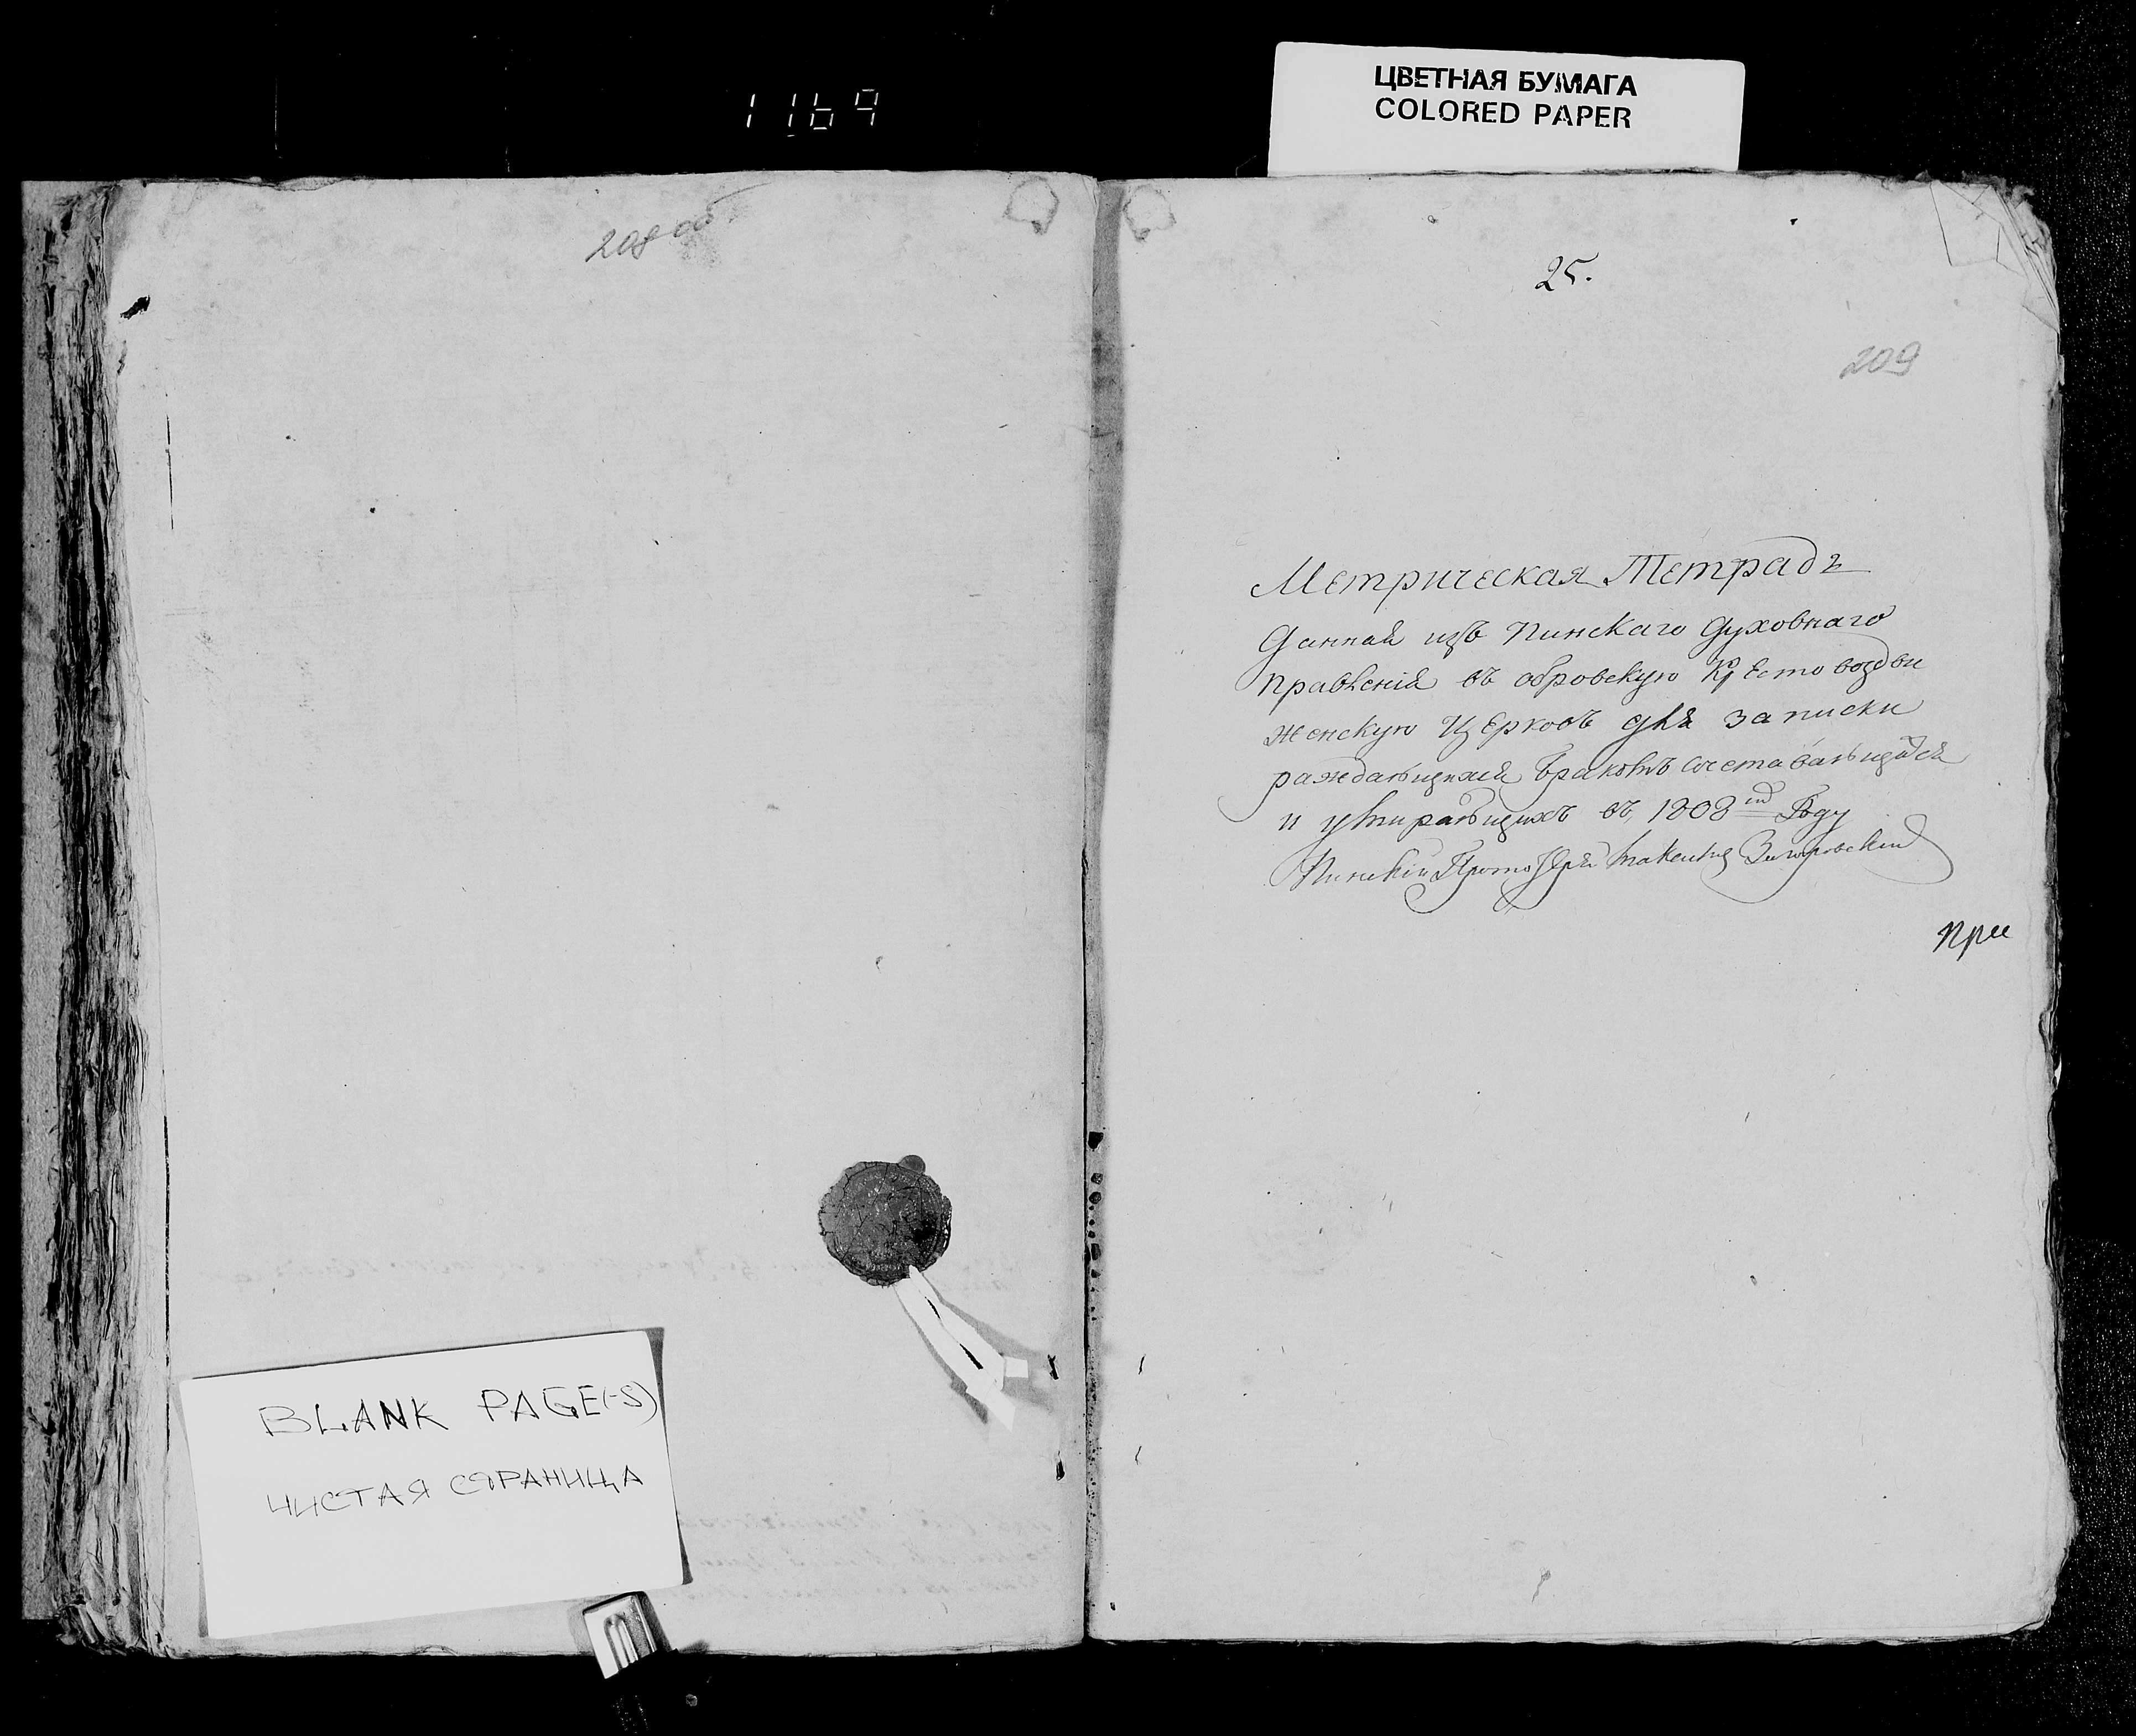 1169
ЦВЕТНАЯ БУМАГА
COLORED PAPER
208 об
25.
209
Метрическая Тетрадь
Данная изъ Пинскаго Духовнаго
Правленія въ обровскую Крестовоздви
женскую Церковь для записки
раждающихся браковъ сочетавающихся
и умирающихъ въ 1808 Году
Пинскій Протоіерей
при
BLANK PAGE(-S)
ЧИСТАЯ СТРАНИЦА